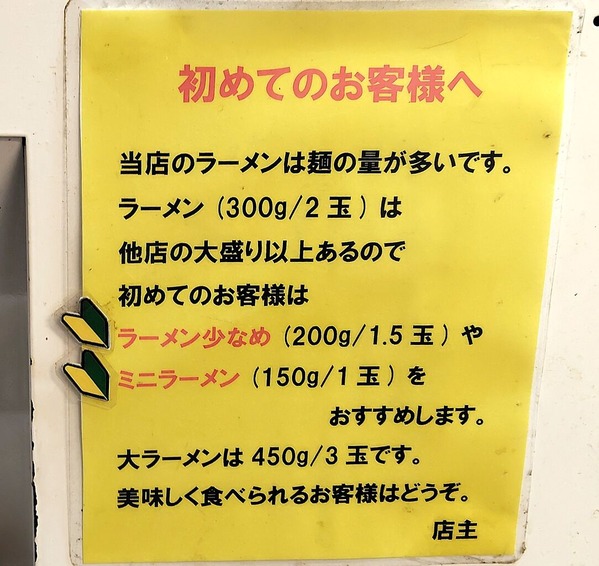 初めてのお客様へ
当店のラーメンは麺の量が多いです。
ラーメン（300g/2 玉）は
他店の大盛り以上あるので
初めてのお客様は
ラーメン少なめ（200g/1.5 玉）や
ミニラーメン（150g/1 玉）を
おすすめします。
大ラーメンは 450g/3 玉です。
美味しく食べられるお客様はどうぞ。
店主